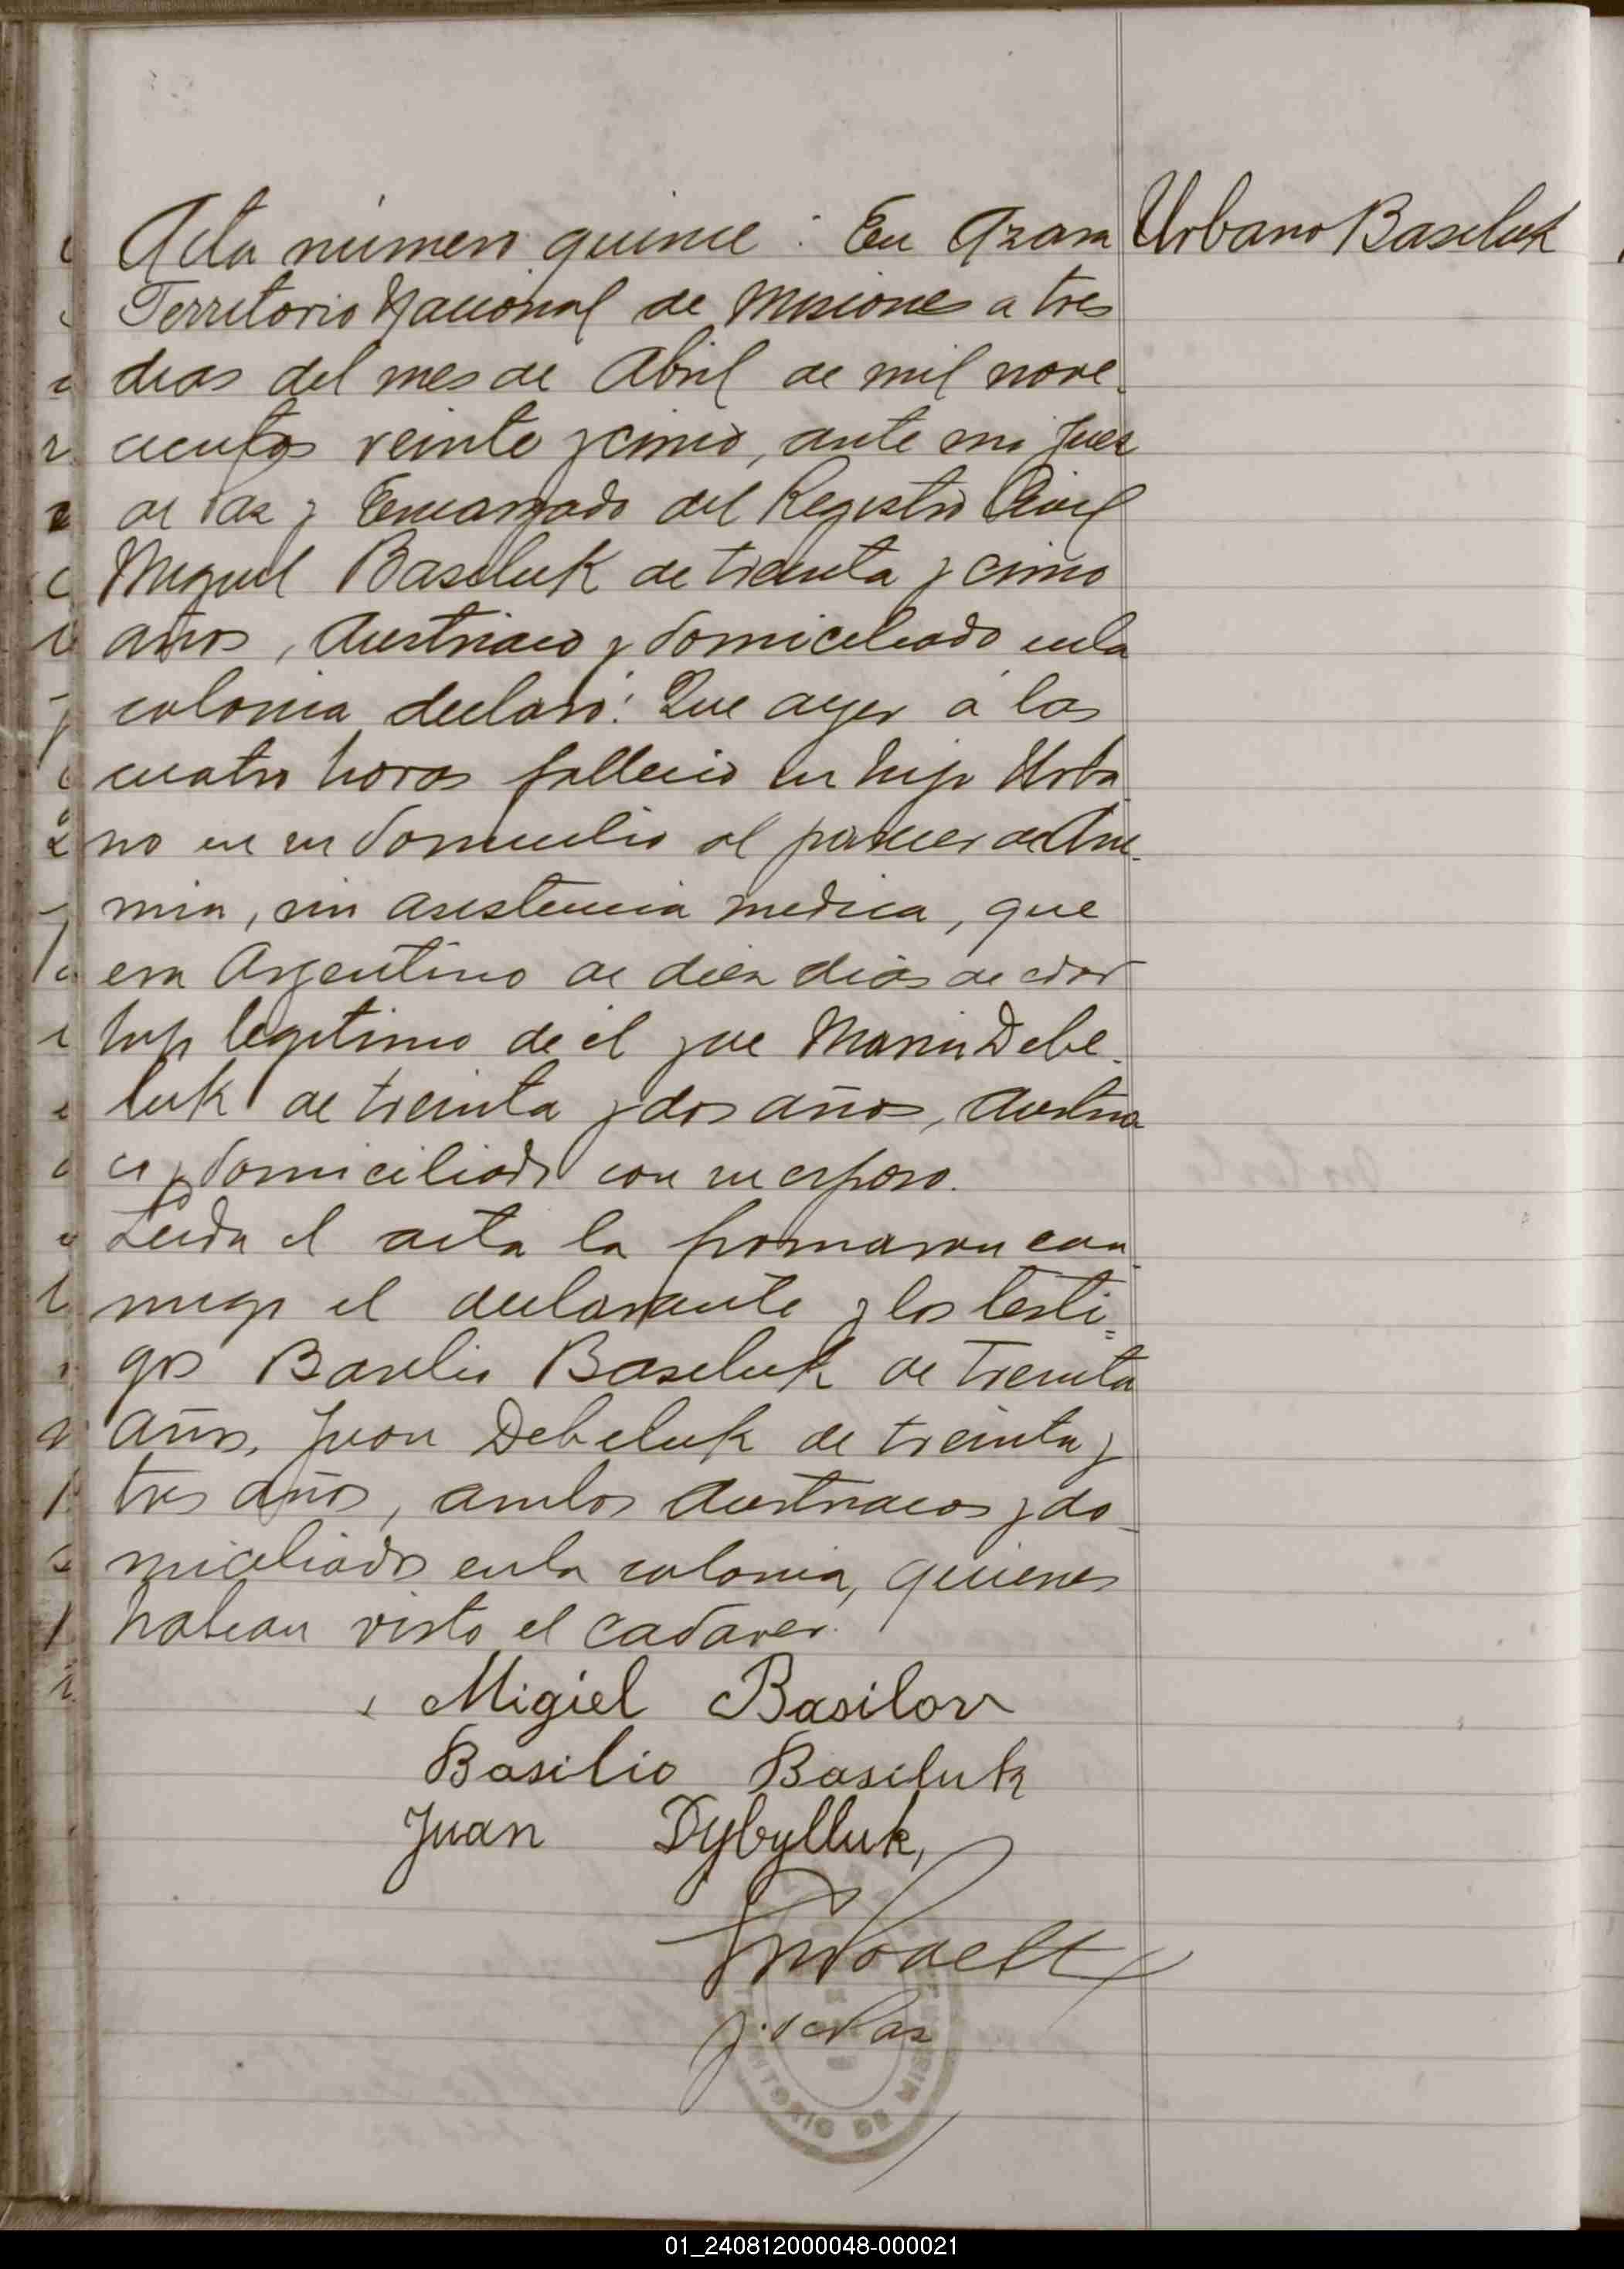 Acta número quince : En Azara
Urbano Baseluk
Territorio Nacional de Misiones a tres
dias del mes de Abril de mil nove-
cientos veinte y cinco, ante mi Juez
de Paz y Encargado del Registro Civil
Miguel Baseluk de treinta y cinco
años, Austriaco y domiciliado en la
colonia declaró: Que ayer á las
cuatro horas fallecio su hijo Urba-
no en su domicilio al parecer de Ane-
mia, sin asistencia medica, que
era Argentino de diez dias de edad
hijo legitimo de él y de Maria Debe-
luk de treinta y dos años, Austria
ca y domiciliada con su esposo.
Leida el acta la firmaron con-
migo el declarante y los testi=
gos Basilio Baseluk de treinta
años, Juan Debeluk de treinta y
tres años, ambos Austriacos y do-
miciliados en la colonia, quienes
habian visto el cadaver.
Migiel Basilov
Basilio Baseluk
Juan Dybylluk,
J. de Paz
TERRITORIO DE MISIONES
01_240812000048-000021